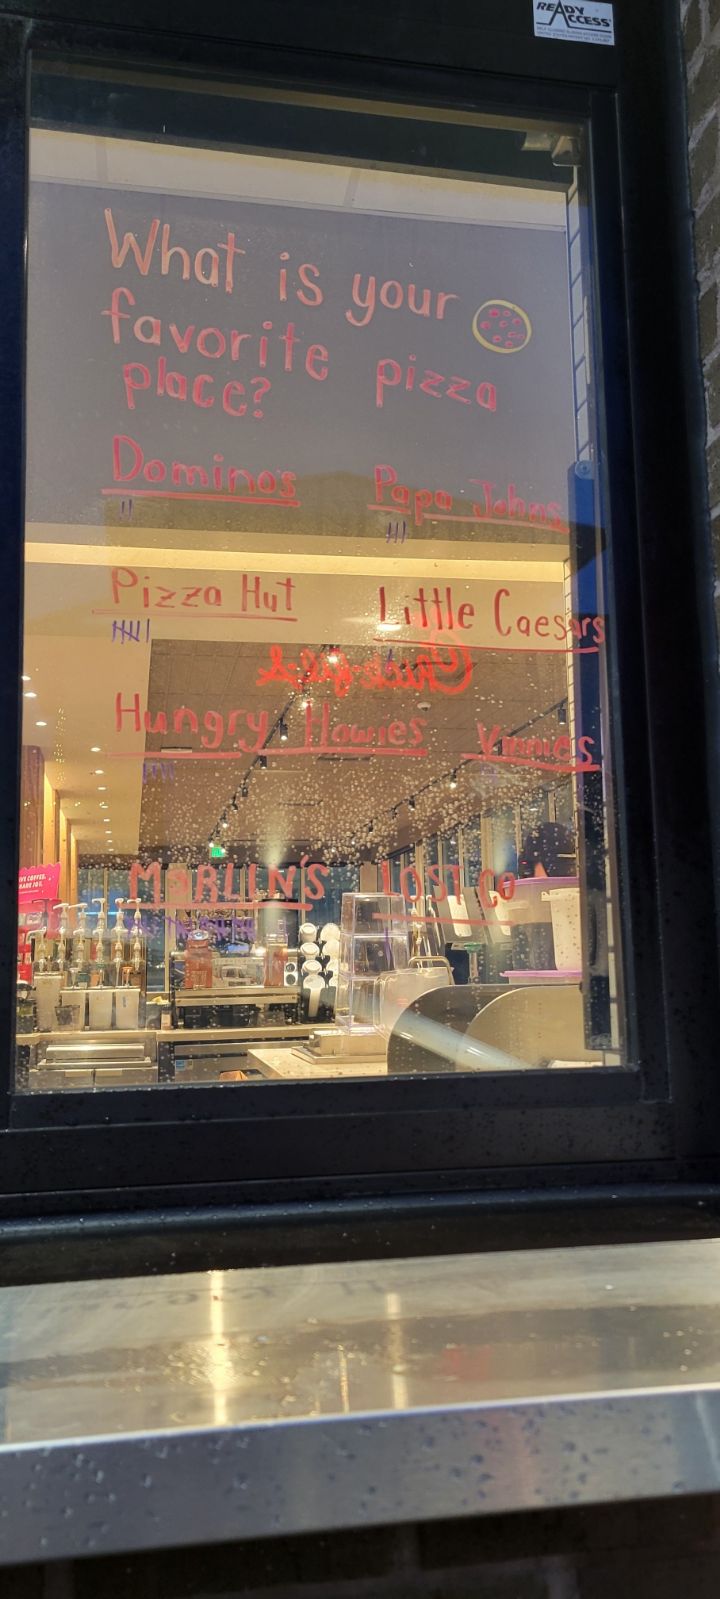 READY ACCESS
What is your
favorite pizza
place?
Dominos Papa Johns
Pizza Hut Little Caesars
Chick-fil-A
Hungry Howies Vinnies
MORLIN'S LOST CO